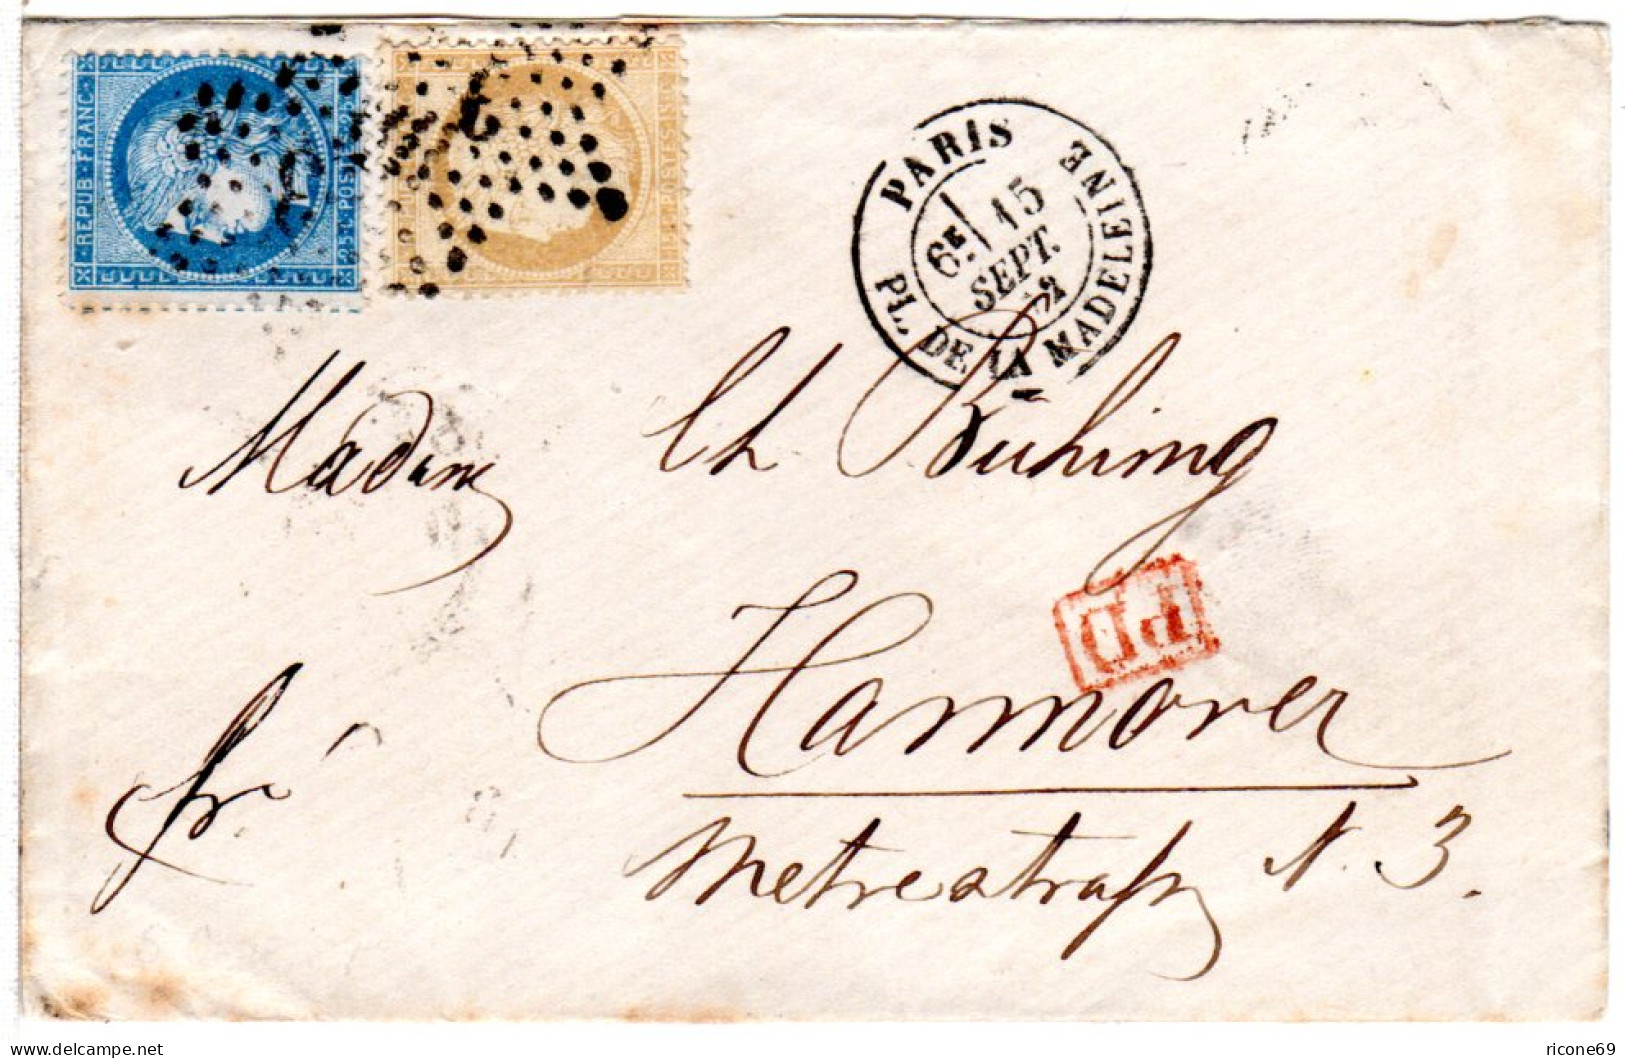 REPUB·FRANC·
25·C·POSTES·25·C
PARIS
PL. DE LA MADELEINE
6E 15
SEPT.
72
Madame Ch Bühring
PD
Hannover
fr.
Metrestraße N. 3.
delcampe.net
ricone69